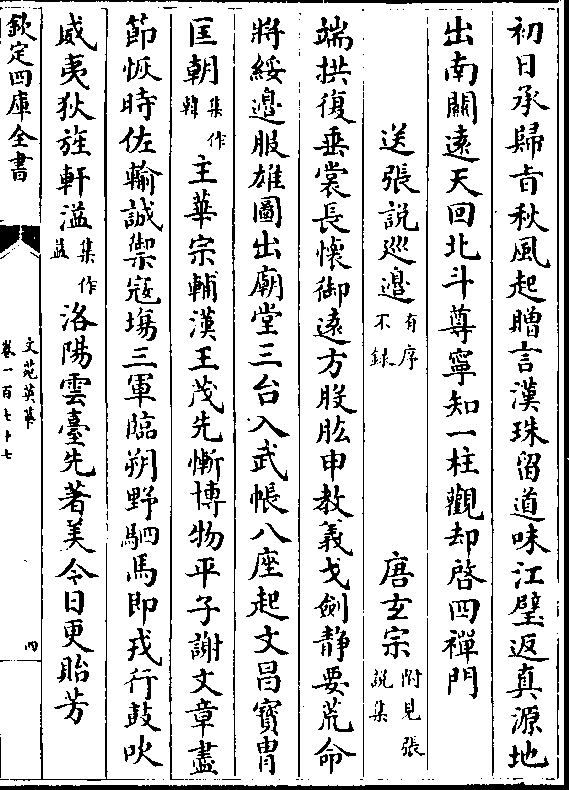 初日承歸㫖秋風起贈言漢珠留道味江璧返真源地
出南關逺天回北斗尊寧知一柱觀却啓四禪門
送張說廵邊有序不録 唐玄宗附見張說集
端拱復垂裳長懐御逺方股肱申教義戈劍静要荒命
將綏邊服雄圖出廟堂三台入武帳八座起文昌寳胄
匡朝集作韓主華宗輔漢王茂先慚博物平子謝文章盡
節恢時佐輸誠禦寇塲三軍臨朔野駟馬即戎行鼓吹
威夷狄旌軒溢集作益洛陽雲臺先著美今日更貽芳
欽定四庫全書
文苑英華
卷一百七十七
四